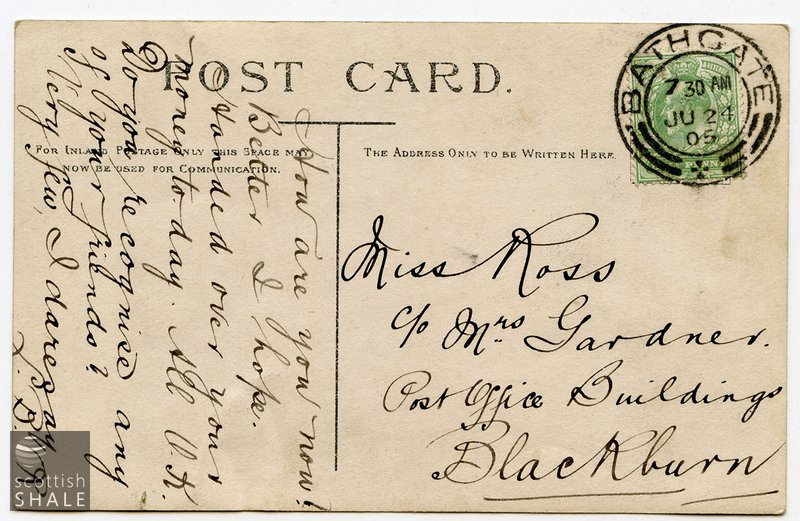 POST CARD.
FOR INLAND POSTAGE ONLY THIS SPACE MAY
NOW BE USED FOR COMMUNICATION.
THE ADDRESS ONLY TO BE WRITTEN HERE.
BATHGATE
7 30 AM
JU 24
05
How are you now?
Better I hope.
Handed over your
money to-day. All O.K.
Do you recognise any
of your friends?
Very few, I daresay
Miss Ross
c/o Mrs Gardner.
Post Office Buildings
Blackburn
scottish
SHALE